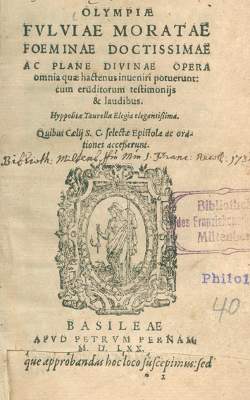 OLYMPIÆ
FVLVIAE MORATAE
FOEMINAE DOCTISSIMAE
AC PLANE DIVINAE OPERA
omnia quæ hactenus inueniri potuerunt:
cum eruditorum testimonijs
& laudibus.
Hyppolitæ Taurellæ Elegia elegantissima.
Quibus Cælij S. C. selectæ Epistolæ ac ora-
tiones accesserunt.
Biblioth.
Bibliothek
des Franziskan
Miltenber
Philol
40
BASILEAE
APVD PETRVM PERNAM
M. D. LXX.
que approbandas hoc loco suscepimus: sed